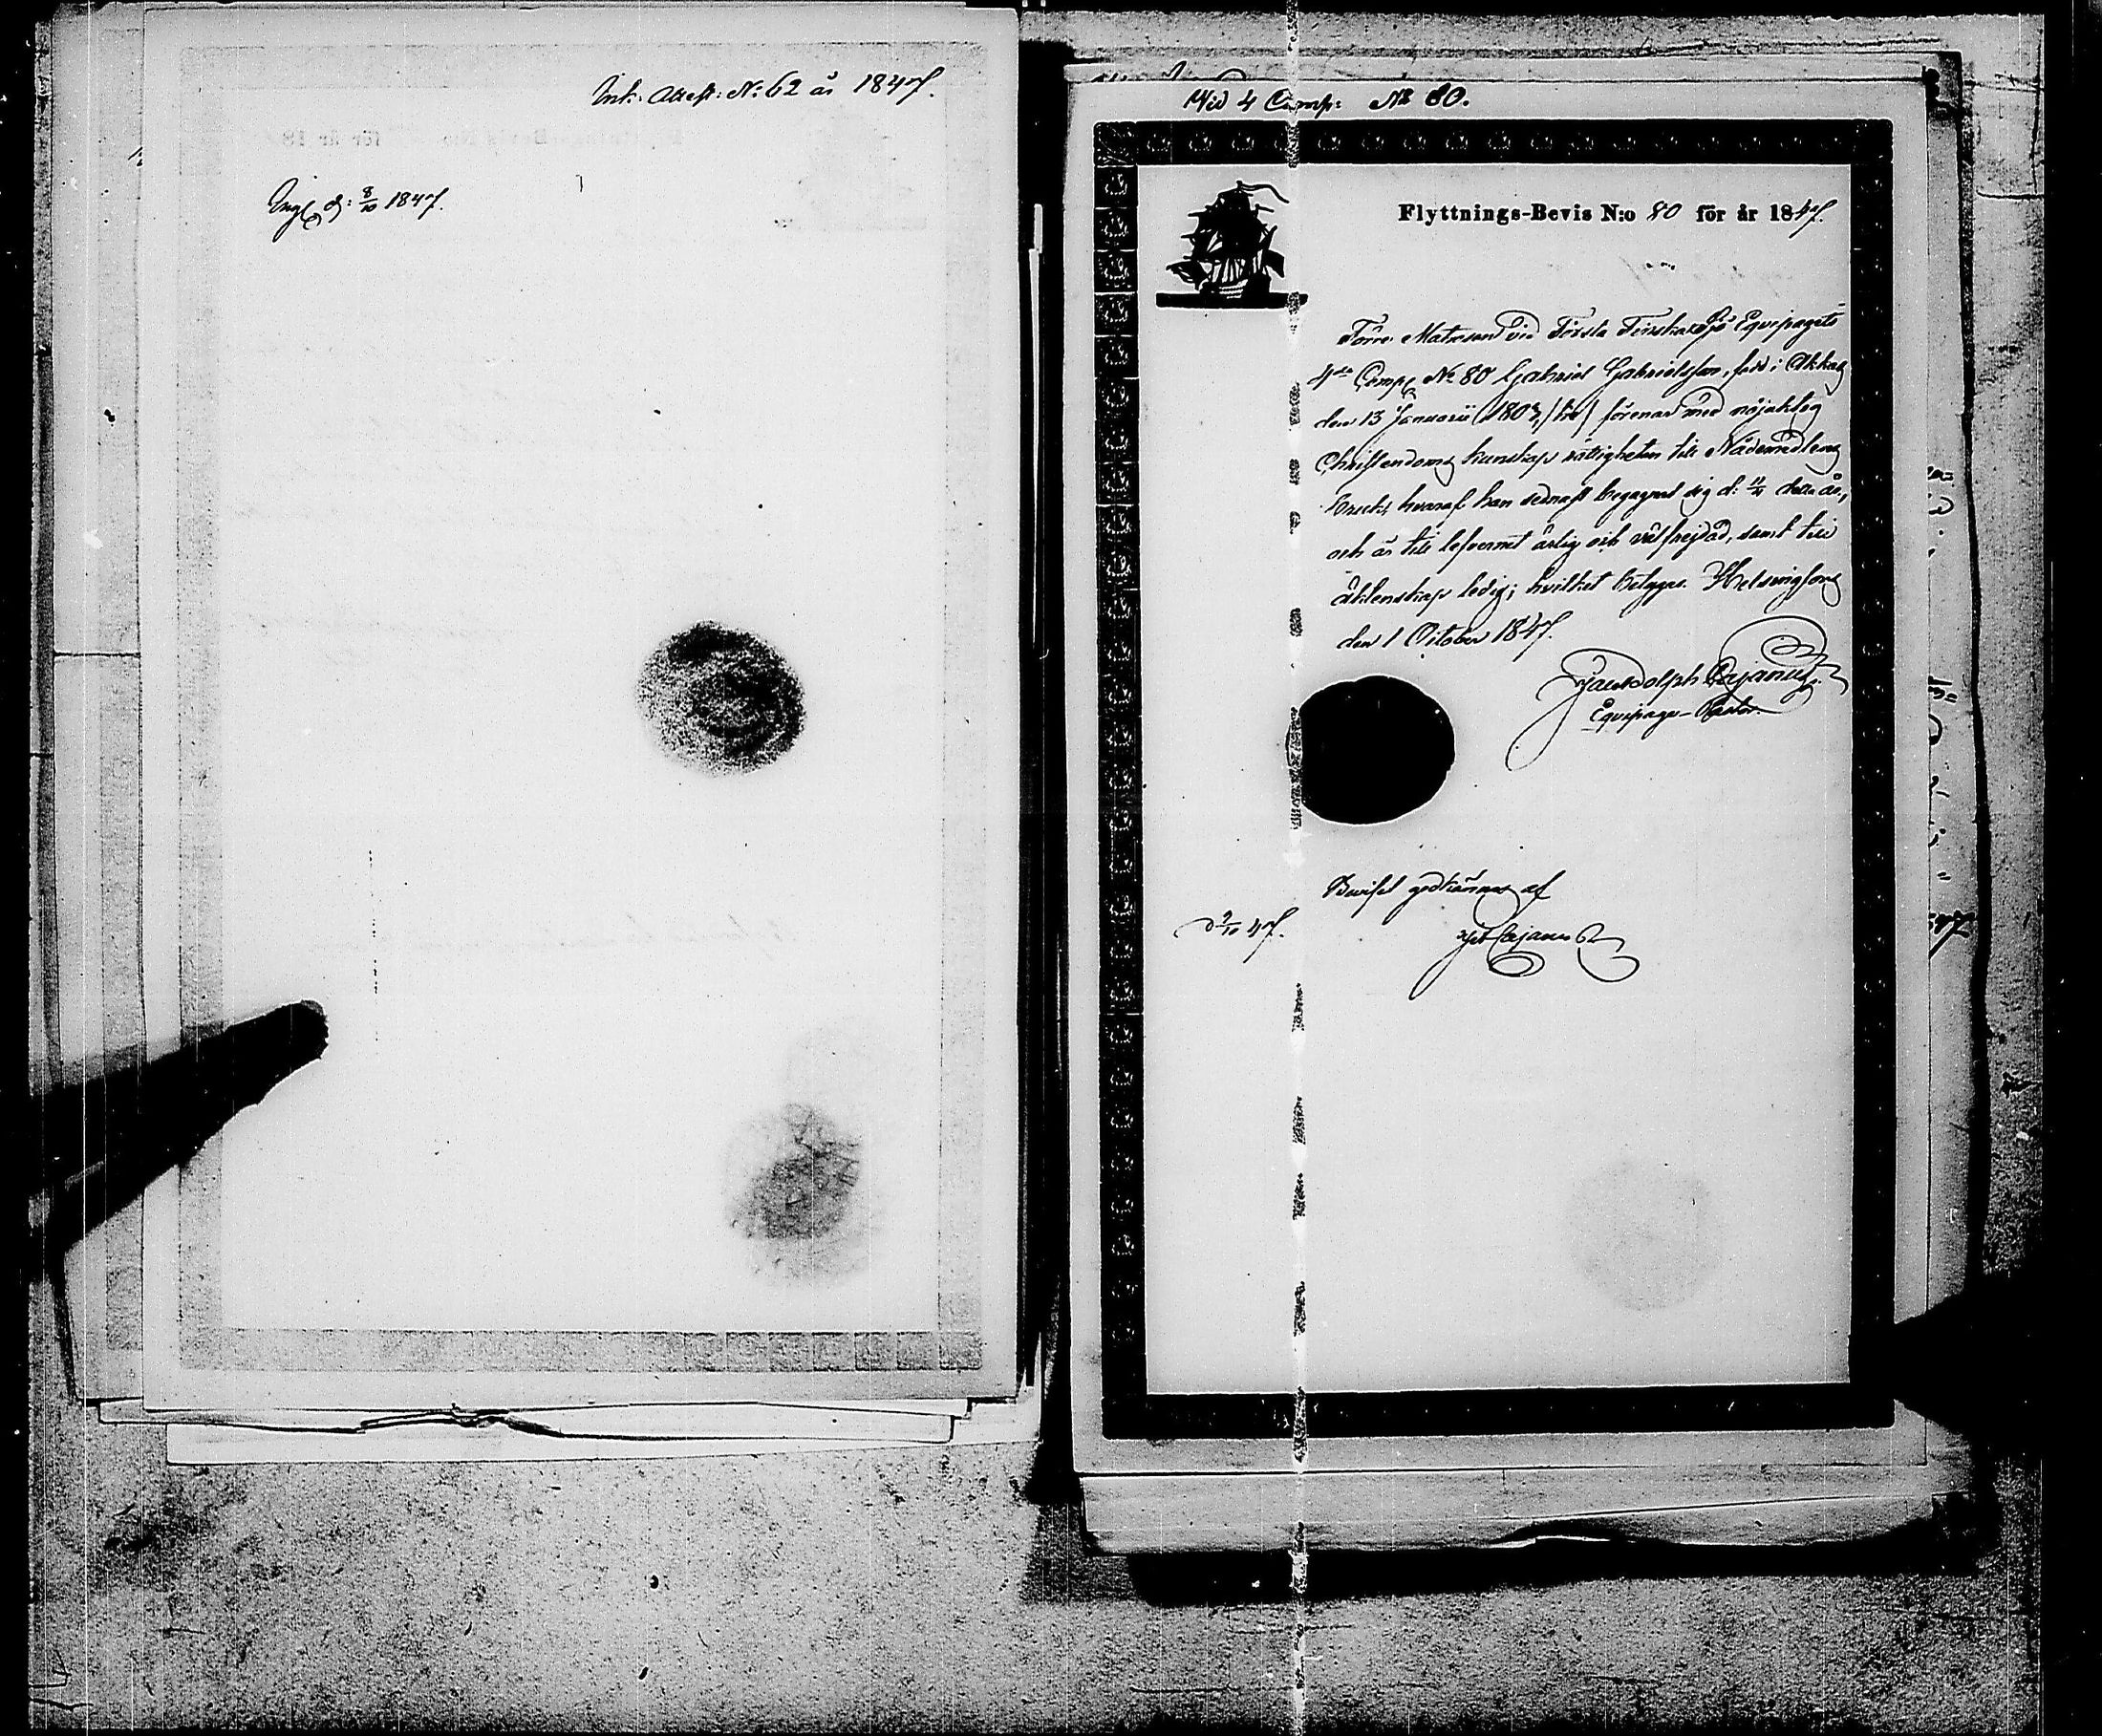 Ink: Attest: N: 62 år 1847.
d: 8/10 1847.
Wid 4 Comp: No 80.
Flyttnings-Bevis N:o 80 för år 1847.
Förre Matrosen vid Första Finska Sjö Equipagets
4de Comp. No 80 Gabriel Gabrielsson, född i
den 13 Januarii 1803, /tre/ förenar med nöjaktig
Christendoms kunskap rättigheten till Nådemedlens
bruk, hvaraf han sednast begagnat sig d: detta år,
och är till lefvernet ärlig och välfrejdad, samt till
äktenskap ledig; hvilket betygas. Helsingfors
den 1 October 1847.
Adolph Cajanus.
Equipage-Pastor.
Beviset godkännes af
d 2/10 47.
Cajanus